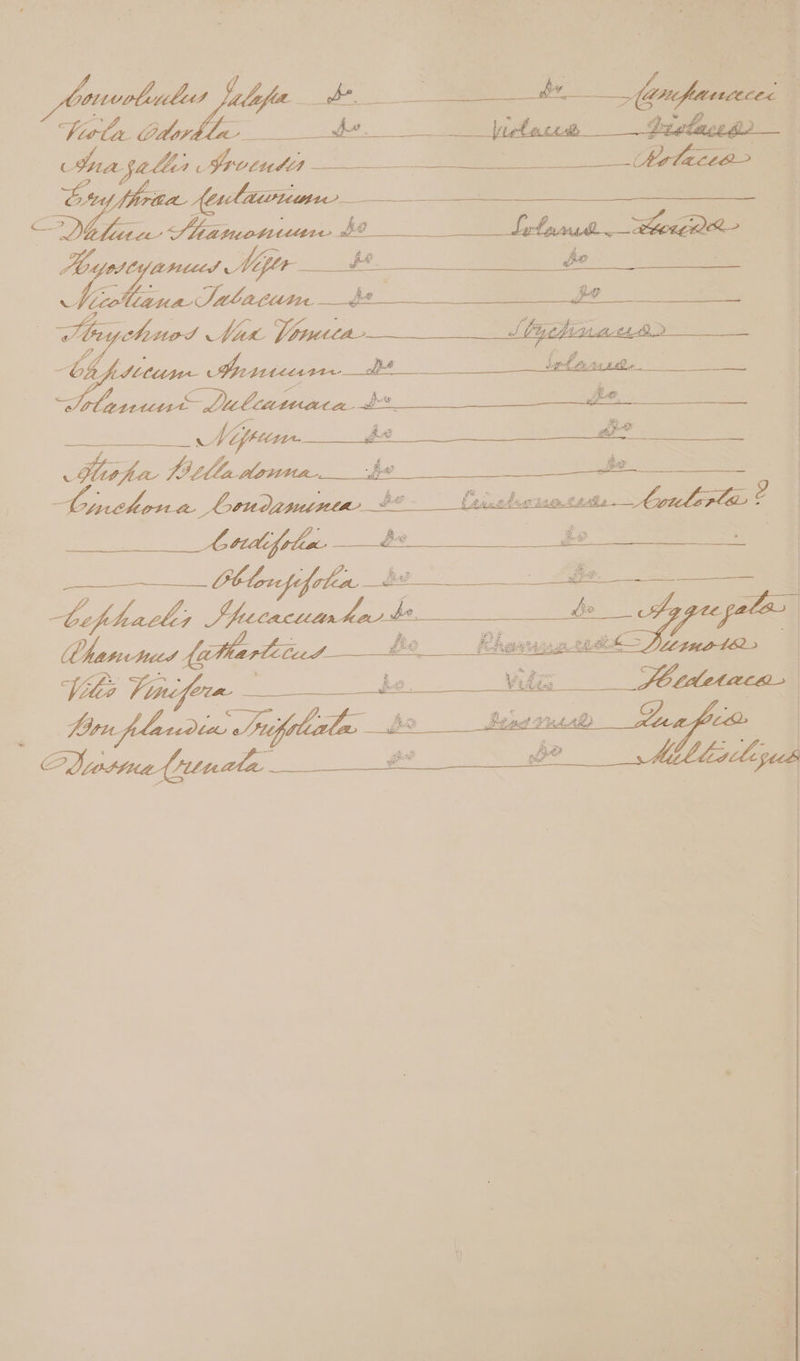 Convolvulus Jalapa do do Campanaceei
Viola Odorata do Violaceæ Violaceæ
Anagallis Arvensis Rotaceæ
Erythræa Centaurium
Datura Stramonium do Solaneæ Luridæ
Hyoscyamus Niger do do
Nicotiana Tabacum do do
Strychnos Nux Vomica Strychnaceæ
Capsicum Annuum do Solaneæ
Solanum Dulcamara do do
Nigrum do do
Atropa Belladonna do do
Cinchona Condaminea do Cinchonaceæ Contortæ?
Cordifolia do do
Oblongifolia do do
Cephaelis Ipecacuanha do do Aggregatæ
Rhamnus Catharticus do Rhamnaceæ Dumosæ
Vitis Vinifera do Vites Hederaceæ
Bonplandia Trifoliata do Diosmeæ
Diosma Crenata do do Multisiliquæ